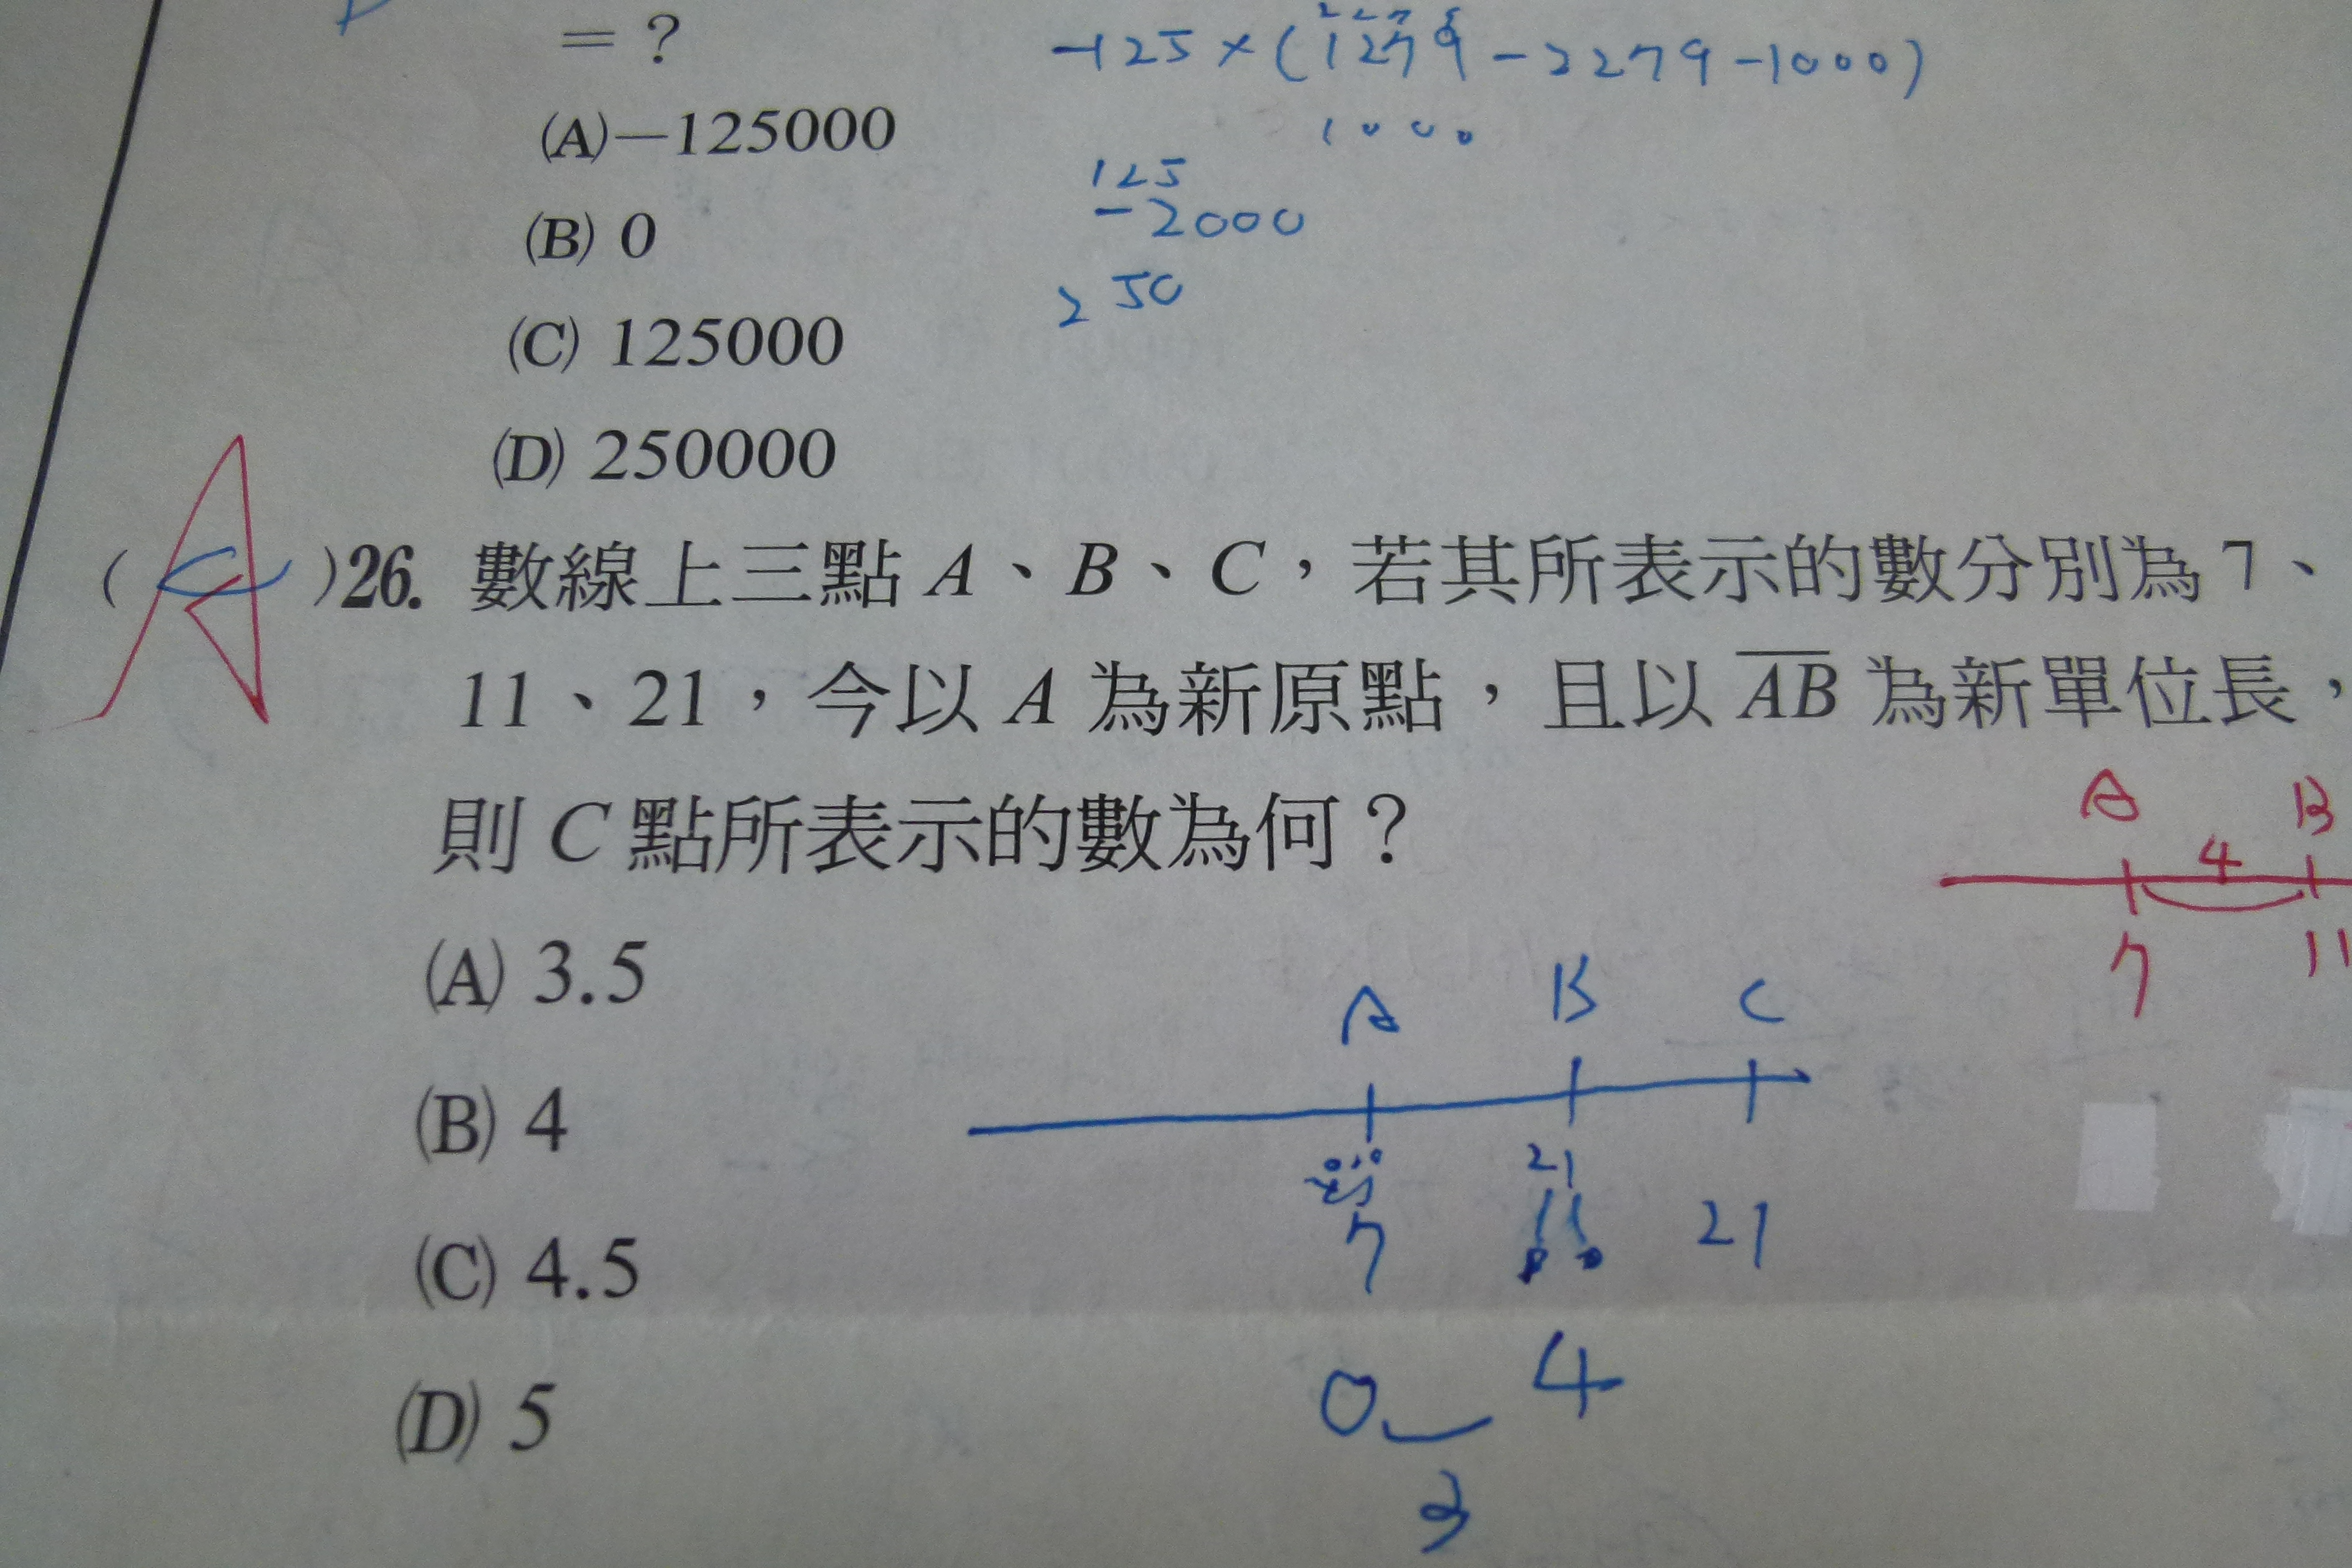 = ?
-125×(1279-2279-1000)
1000
(A)-125000
125
-2000
(B) 0
250
(C) 125000
(D) 250000
( C )26. 數線上三點 A、B、C，若其所表示的數分別為 7、
A
11、21，今以 A 為新原點，且以 AB 為新單位長，
則 C 點所表示的數為何？
A B
4
7 11
(A) 3.5
A B C
(B) 4
21
7 11 21
(C) 4.5
0 4
(D) 5
3